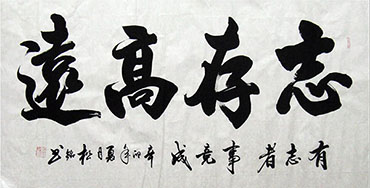 志存高遠
有志者事竟成 辛卯年夏月 松銘书